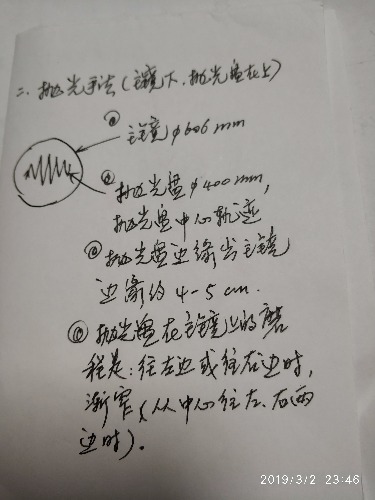 二、抛光手法(主镜下,抛光盘在上)
ⓐ 主镜φ606mm
抛光盘φ400mm,
抛光盘中心轨迹
抛光盘边缘出主镜
边缘约4-5cm.
ⓒ 抛光盘在主镜上的磨
程是:往左边或往右边时,
渐窄(从中心往左、右两
边时)。
2019/3/2 23:46